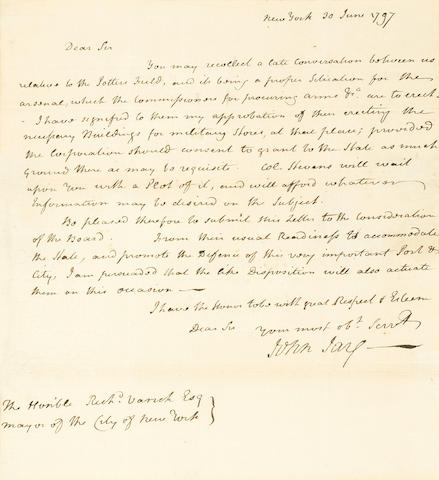 New York 30 June 1797
Dear Sir
You may recollect a late Conversation between us
relative to the Potters Field, and its being a proper Situation for the
arsenal, which the Commissioners for procuring arms &c. are to erect
- I have signified to them my approbation of their erecting the
necessary Buildings for military Stores, at that place; provided
the Corporation should consent to grant to the State as much
Ground there as may be requisite. Col. Stevens will wait
upon You with a Plot of it, and will afford whatever
Information may be desired on the Subject.
Be pleased therefore to submit this Letter to the Consideration
of the Board. From their usual Readiness to accommodate
the State, and promote the Defence of this very important Port &
City, I am persuaded that the like Disposition will also actuate
them on this occasion —
I have the Honor to be with great Respect & Esteem
Dear Sir your most obt. Servt.
John Jay —
The Honble Richd. Varick Esq
mayor of the City of New York